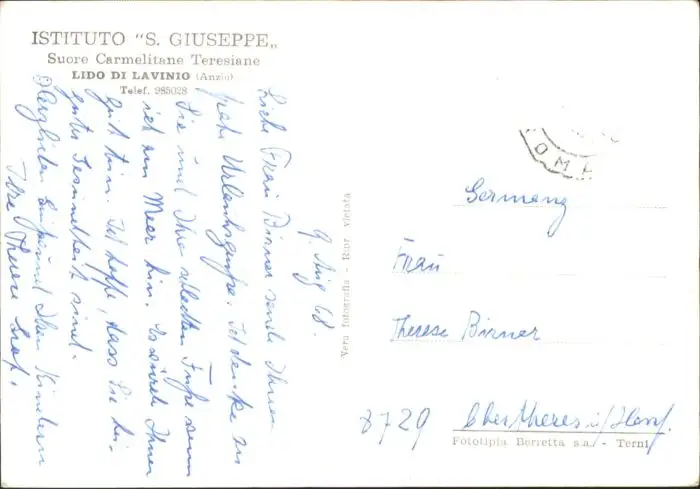 ISTITUTO "S. GIUSEPPE„
Suore Carmelitane Teresiane
LIDO DI LAVINIO (Anzio)
Telef. 985028
9. Aug 68.
Liebe Frau Birner sende Ihnen
frohe Urlaubsgrüße. Ich denke an
Sie und Ihre schlechten Füße wenn
ich am Meer bin. Es würde Ihnen
gut tun. Ich hoffe, dass Sie bei
guter Gesundheit sind.
Herzlichen Ihnen und Ihren Kindern
Ihre Therese
Vera Fotografia - Ripr. Vietata
OMA
Germany
Frau
Therese Birner
8729 Obertheres
Fototipia Berretta s.a. - Terni